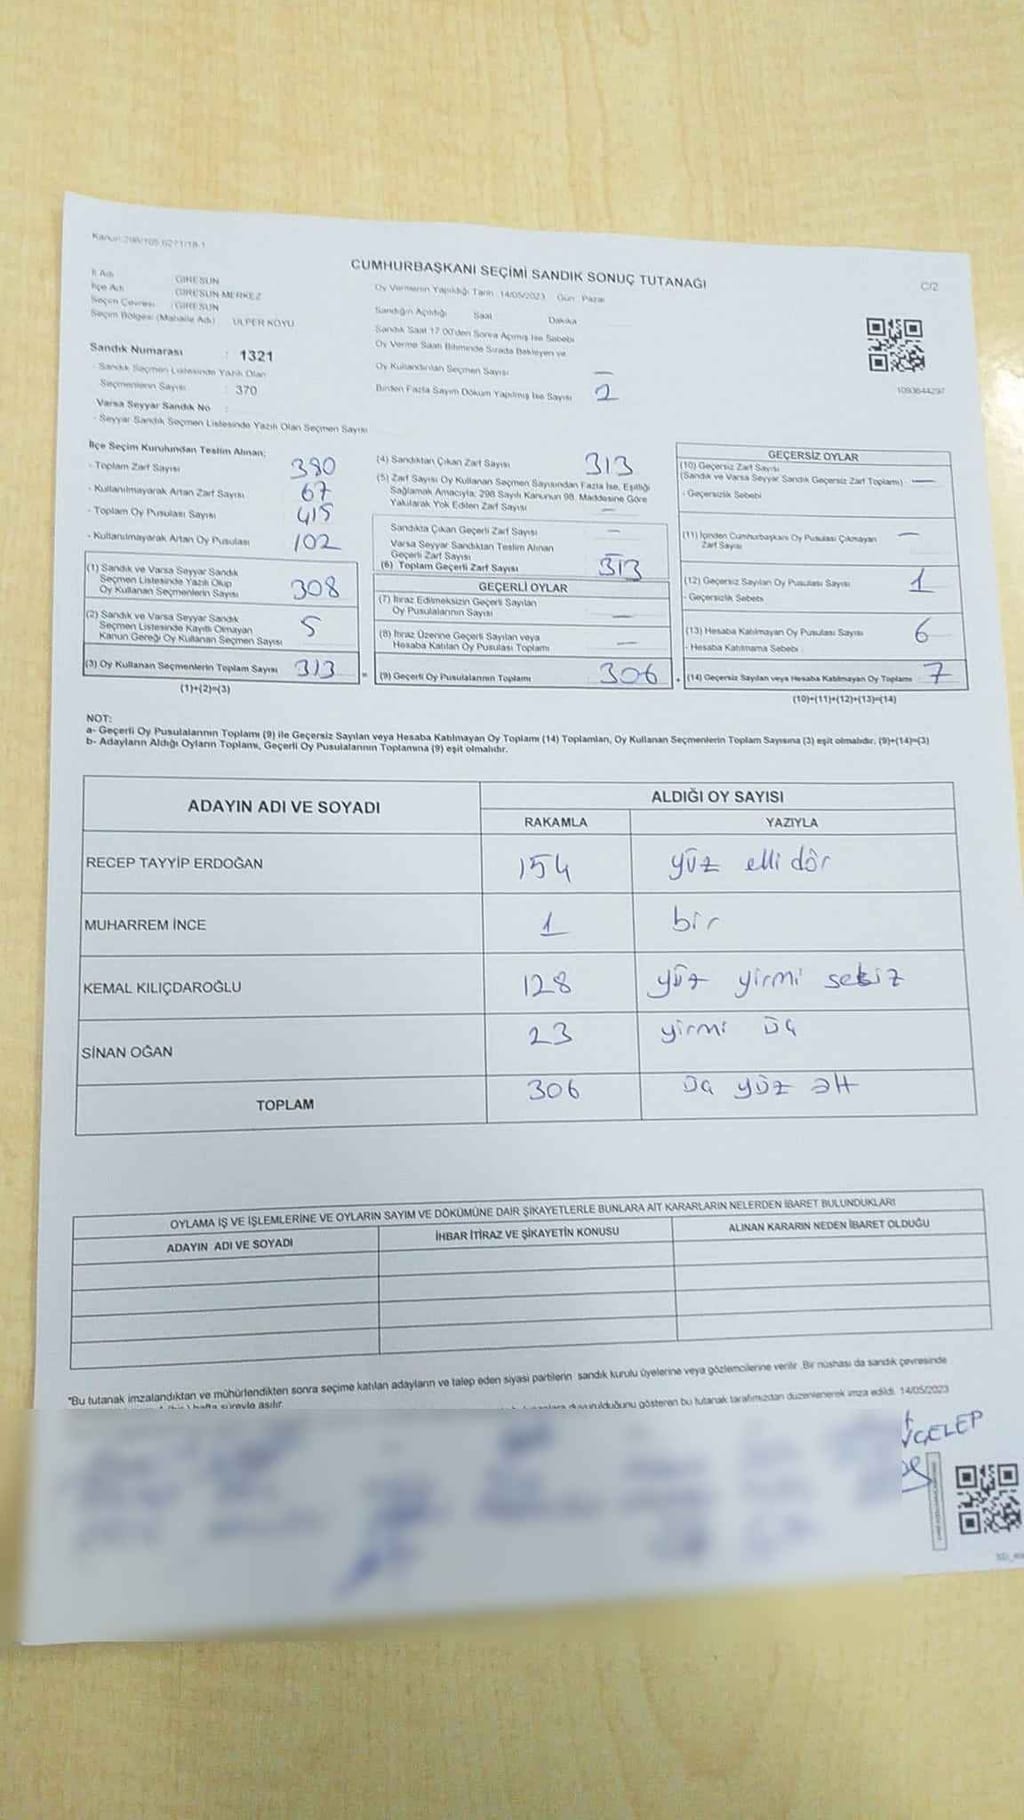 Kanun:298/105 6271/18-1
CUMHURBAŞKANI SEÇİMİ SANDIK SONUÇ TUTANAĞI
C/2
İl Adı GİRESUN
İlçe Adı GİRESUN MERKEZ
Seçim Çevresi : GİRESUN
Seçim Bölgesi (Mahalle Adı) ÜLPER KÖYÜ
Oy Vermenin Yapıldığı Tarih : 14/05/2023 Gün : Pazar
Sandığın Açıldığı Saat Dakika
Sandık Saat 17:00'den Sonra Açılmış İse Sebebi
Oy Verme Saati Bitiminde Sırada Bekleyen ve
Oy Kullandırılan Seçmen Sayısı —
Birden Fazla Sayım Döküm Yapılmış İse Sayısı 2
1093644297
Sandık Numarası : 1321
- Sandık Seçmen Listesinde Yazılı Olan
Seçmenlerin Sayısı : 370
Varsa Seyyar Sandık No :
- Seyyar Sandık Seçmen Listesinde Yazılı Olan Seçmen Sayısı
İlçe Seçim Kurulundan Teslim Alınan;
- Toplam Zarf Sayısı 380
- Kullanılmayarak Artan Zarf Sayısı 67
- Toplam Oy Pusulası Sayısı 415
- Kullanılmayarak Artan Oy Pusulası 102
(1) Sandık ve Varsa Seyyar Sandık
Seçmen Listesinde Yazılı Olup
Oy Kullanan Seçmenlerin Sayısı 308
(2) Sandık ve Varsa Seyyar Sandık
Seçmen Listesinde Kayıtlı Olmayan
Kanun Gereği Oy Kullanan Seçmen Sayısı 5
(3) Oy Kullanan Seçmenlerin Toplam Sayısı 313
(1)+(2)=(3)
(4) Sandıktan Çıkan Zarf Sayısı 313
(5) Zarf Sayısı Oy Kullanan Seçmen Sayısından Fazla İse, Eşitliği
Sağlamak Amacıyla, 298 Sayılı Kanunun 98. Maddesine Göre
Yakılarak Yok Edilen Zarf Sayısı —
Sandıkta Çıkan Geçerli Zarf Sayısı —
Varsa Seyyar Sandıktan Teslim Alınan
Geçerli Zarf Sayısı —
(6) Toplam Geçerli Zarf Sayısı 313
GEÇERLİ OYLAR
(7) İtiraz Edilmeksizin Geçerli Sayılan
Oy Pusulalarının Sayısı —
(8) İtiraz Üzerine Geçerli Sayılan veya
Hesaba Katılan Oy Pusulası Toplamı —
= (9) Geçerli Oy Pusulalarının Toplamı 306
GEÇERSİZ OYLAR
(10) Geçersiz Zarf Sayısı
(Sandık ve Varsa Seyyar Sandık Geçersiz Zarf Toplamı) —
- Geçersizlik Sebebi
(11) İçinden Cumhurbaşkanı Oy Pusulası Çıkmayan
Zarf Sayısı —
(12) Geçersiz Sayılan Oy Pusulası Sayısı 1
- Geçersizlik Sebebi
(13) Hesaba Katılmayan Oy Pusulası Sayısı 6
- Hesaba Katılmama Sebebi
+ (14) Geçersiz Sayılan veya Hesaba Katılmayan Oy Toplamı 7
(10)+(11)+(12)+(13)=(14)
NOT:
a- Geçerli Oy Pusulalarının Toplamı (9) ile Geçersiz Sayılan veya Hesaba Katılmayan Oy Toplamı (14) Toplamları, Oy Kullanan Seçmenlerin Toplam Sayısına (3) eşit olmalıdır. (9)+(14)=(3)
b- Adayların Aldığı Oyların Toplamı, Geçerli Oy Pusulalarının Toplamına (9) eşit olmalıdır.
ADAYIN ADI VE SOYADI ALDIĞI OY SAYISI
RAKAMLA YAZIYLA
RECEP TAYYİP ERDOĞAN 154 yüz elli dör
MUHARREM İNCE 1 bir
KEMAL KILIÇDAROĞLU 128 yüz yirmi sekiz
SİNAN OĞAN 23 yirmi üç
TOPLAM 306 üç yüz altı
OYLAMA İŞ VE İŞLEMLERİNE VE OYLARIN SAYIM VE DÖKÜMÜNE DAİR ŞİKAYETLERLE BUNLARA AİT KARARLARIN NELERDEN İBARET BULUNDUKLARI
ADAYIN ADI VE SOYADI İHBAR İTİRAZ VE ŞİKAYETİN KONUSU ALINAN KARARIN NEDEN İBARET OLDUĞU
*Bu tutanak imzalandıktan ve mühürlendikten sonra seçime katılan adayların ve talep eden siyasi partilerin sandık kurulu üyelerine veya gözlemcilerine verilir. Bir nüshası da sandık çevresinde
hafta süreyle asılır.
duyurulduğunu gösteren bu tutanak tarafımızdan düzenlenerek imza edildi. 14/05/2023